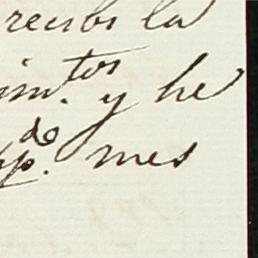 recibi la
im.tos y he
pp.do mes